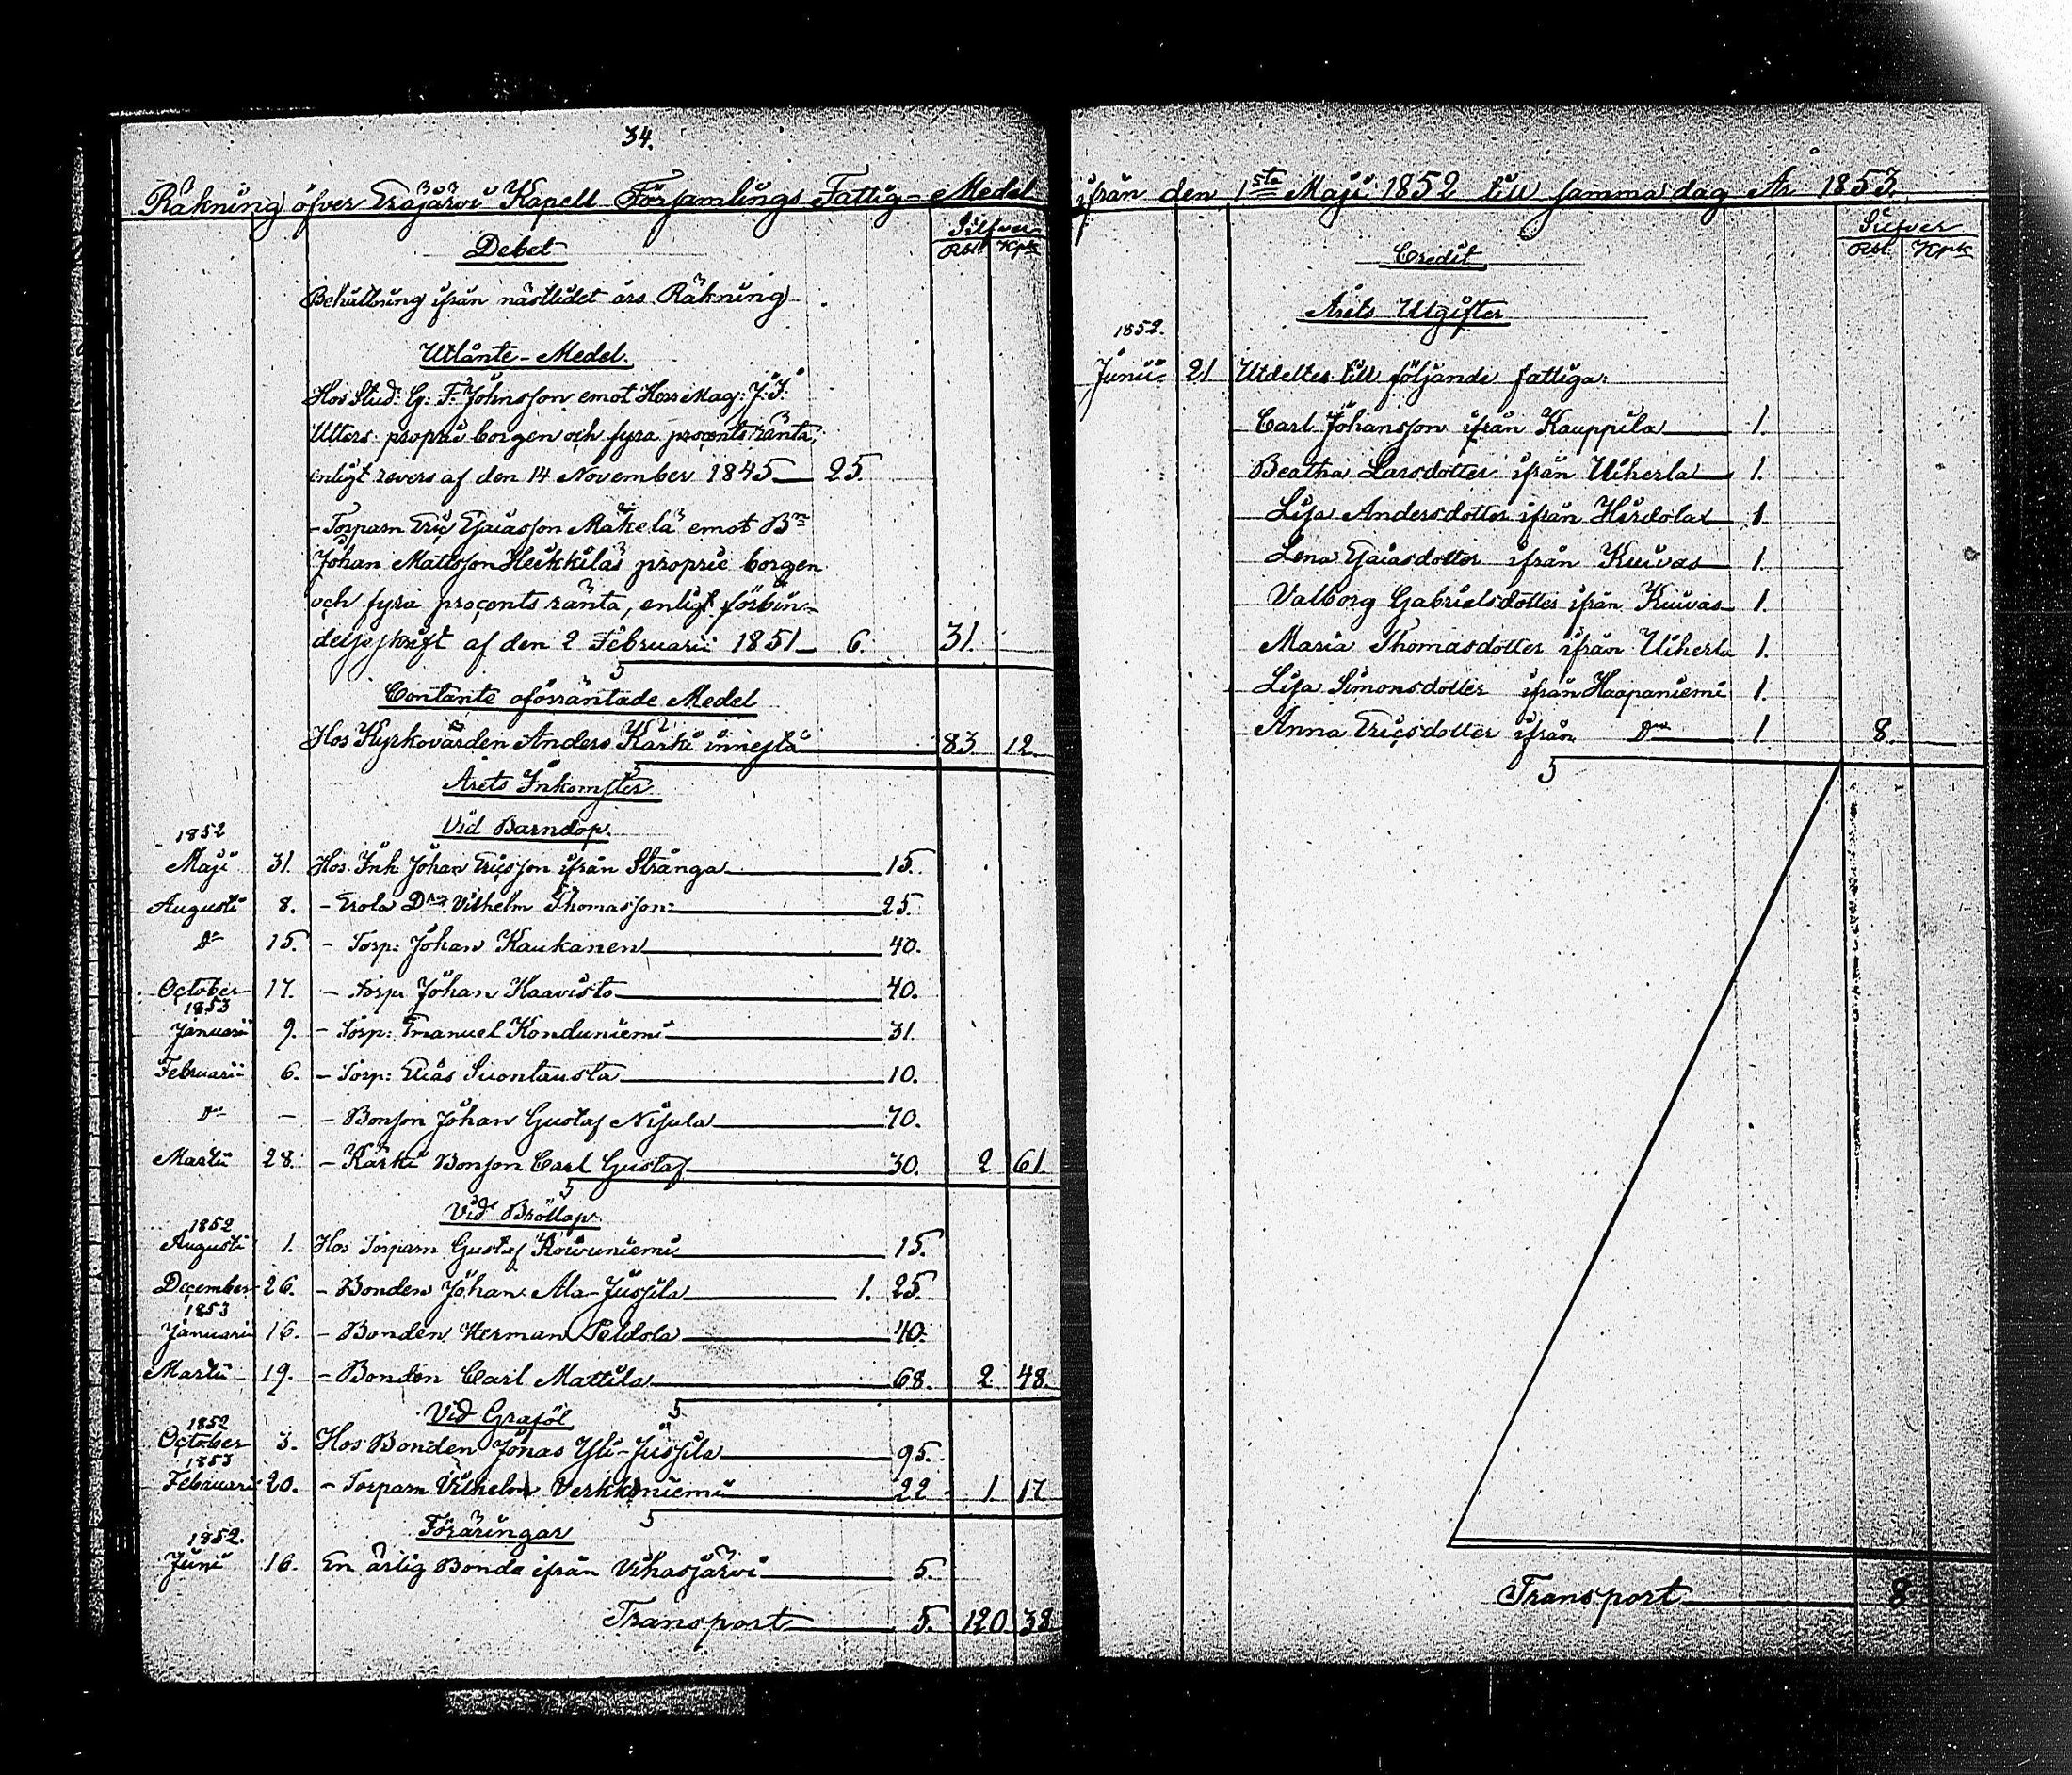 34.
Räkning öfver Eräjärvi Kapell Församlings Fattig-Medel
Silfver
Debet Rbl. Kpk
Behållning ifrån nästlidet års Räkning
Utlånte-Medel.
Hos Stud: G: F. Johnsson emot Herr Mag: J: I:
Utters proprie borgen och fyra procents ränta,
enligt revers af den 14 November 1845 25.
- Torparn Eric Esaiasson Mäkelä emot Bn
Johan Mattsson Heikkiläs proprie borgen
och fyra procents ränta, enligt förbin-
delseskrift af den 2 Februarii 1851 6. 31.
Contante oförräntade Medel
Hos Kyrkovärden Anders Kärki innestå 83 12.
Årets Inkomster
1852 Vid Barndop.
Maji 31. Hos Inh Johan Ericsson ifrån Stränga 15.
Augusti 8. - Erola Dräng Vilhelm Thomasson 25.
Do 15. - Torp: Johan Kaukanen 40.
October 17. - Torp: Johan Haavisto 40.
1853
Januarii 9. - Torp: Emanuel Konduniemi 31.
Februarii 6. - Torp: Elias Suontausta 10.
Do - - Bonson Johan Gustaf Nisula 70.
Martii 28. - Kärki Bonson Carl Gustaf 30. 2 61
Vid Bröllop.
1852
Augusti 1. Hos Torparn Gustaf Koivuniemi 15.
December 26. - Bonden Johan Ala-Jussila 1. 25.
1853
Januarii 16. - Bonden Herman Peldola 40.
Martii 19. - Bonden Carl Mattila 68. 2 48
Vid Graföl
1852
October 3. Hos Bonden Jonas Yli-Jussila 95.
1853
Februarii 20. - Torparn Vilhelm Verkkoniemi 22 1. 17
Föräringar
1852.
Juni 16. En ärlig Bonde ifrån Vihasjärvi 5.
Transport 5. 120 38
ifrån den 1sta Maji 1852 till samma dag År 1853.
Silfver
Credit Rbl. Kpk
Årets Utgifter
1852.
Junii 21 Utdeltes till följande fattiga:
Carl Johansson ifrån Kauppila 1.
Beatha Larsdotter ifrån Uiherla 1.
Lisa Andersdotter ifrån Hirdola 1.
Lena Esaiasdotter ifrån Kuivas 1.
Valborg Gabrielsdotter ifrån Kuivas 1.
Maria Thomasdotter ifrån Uiherla 1.
Lisa Simonsdotter ifrån Haapaniemi 1.
Anna Ericsdotter ifrån Do 1 8.
Transport 8